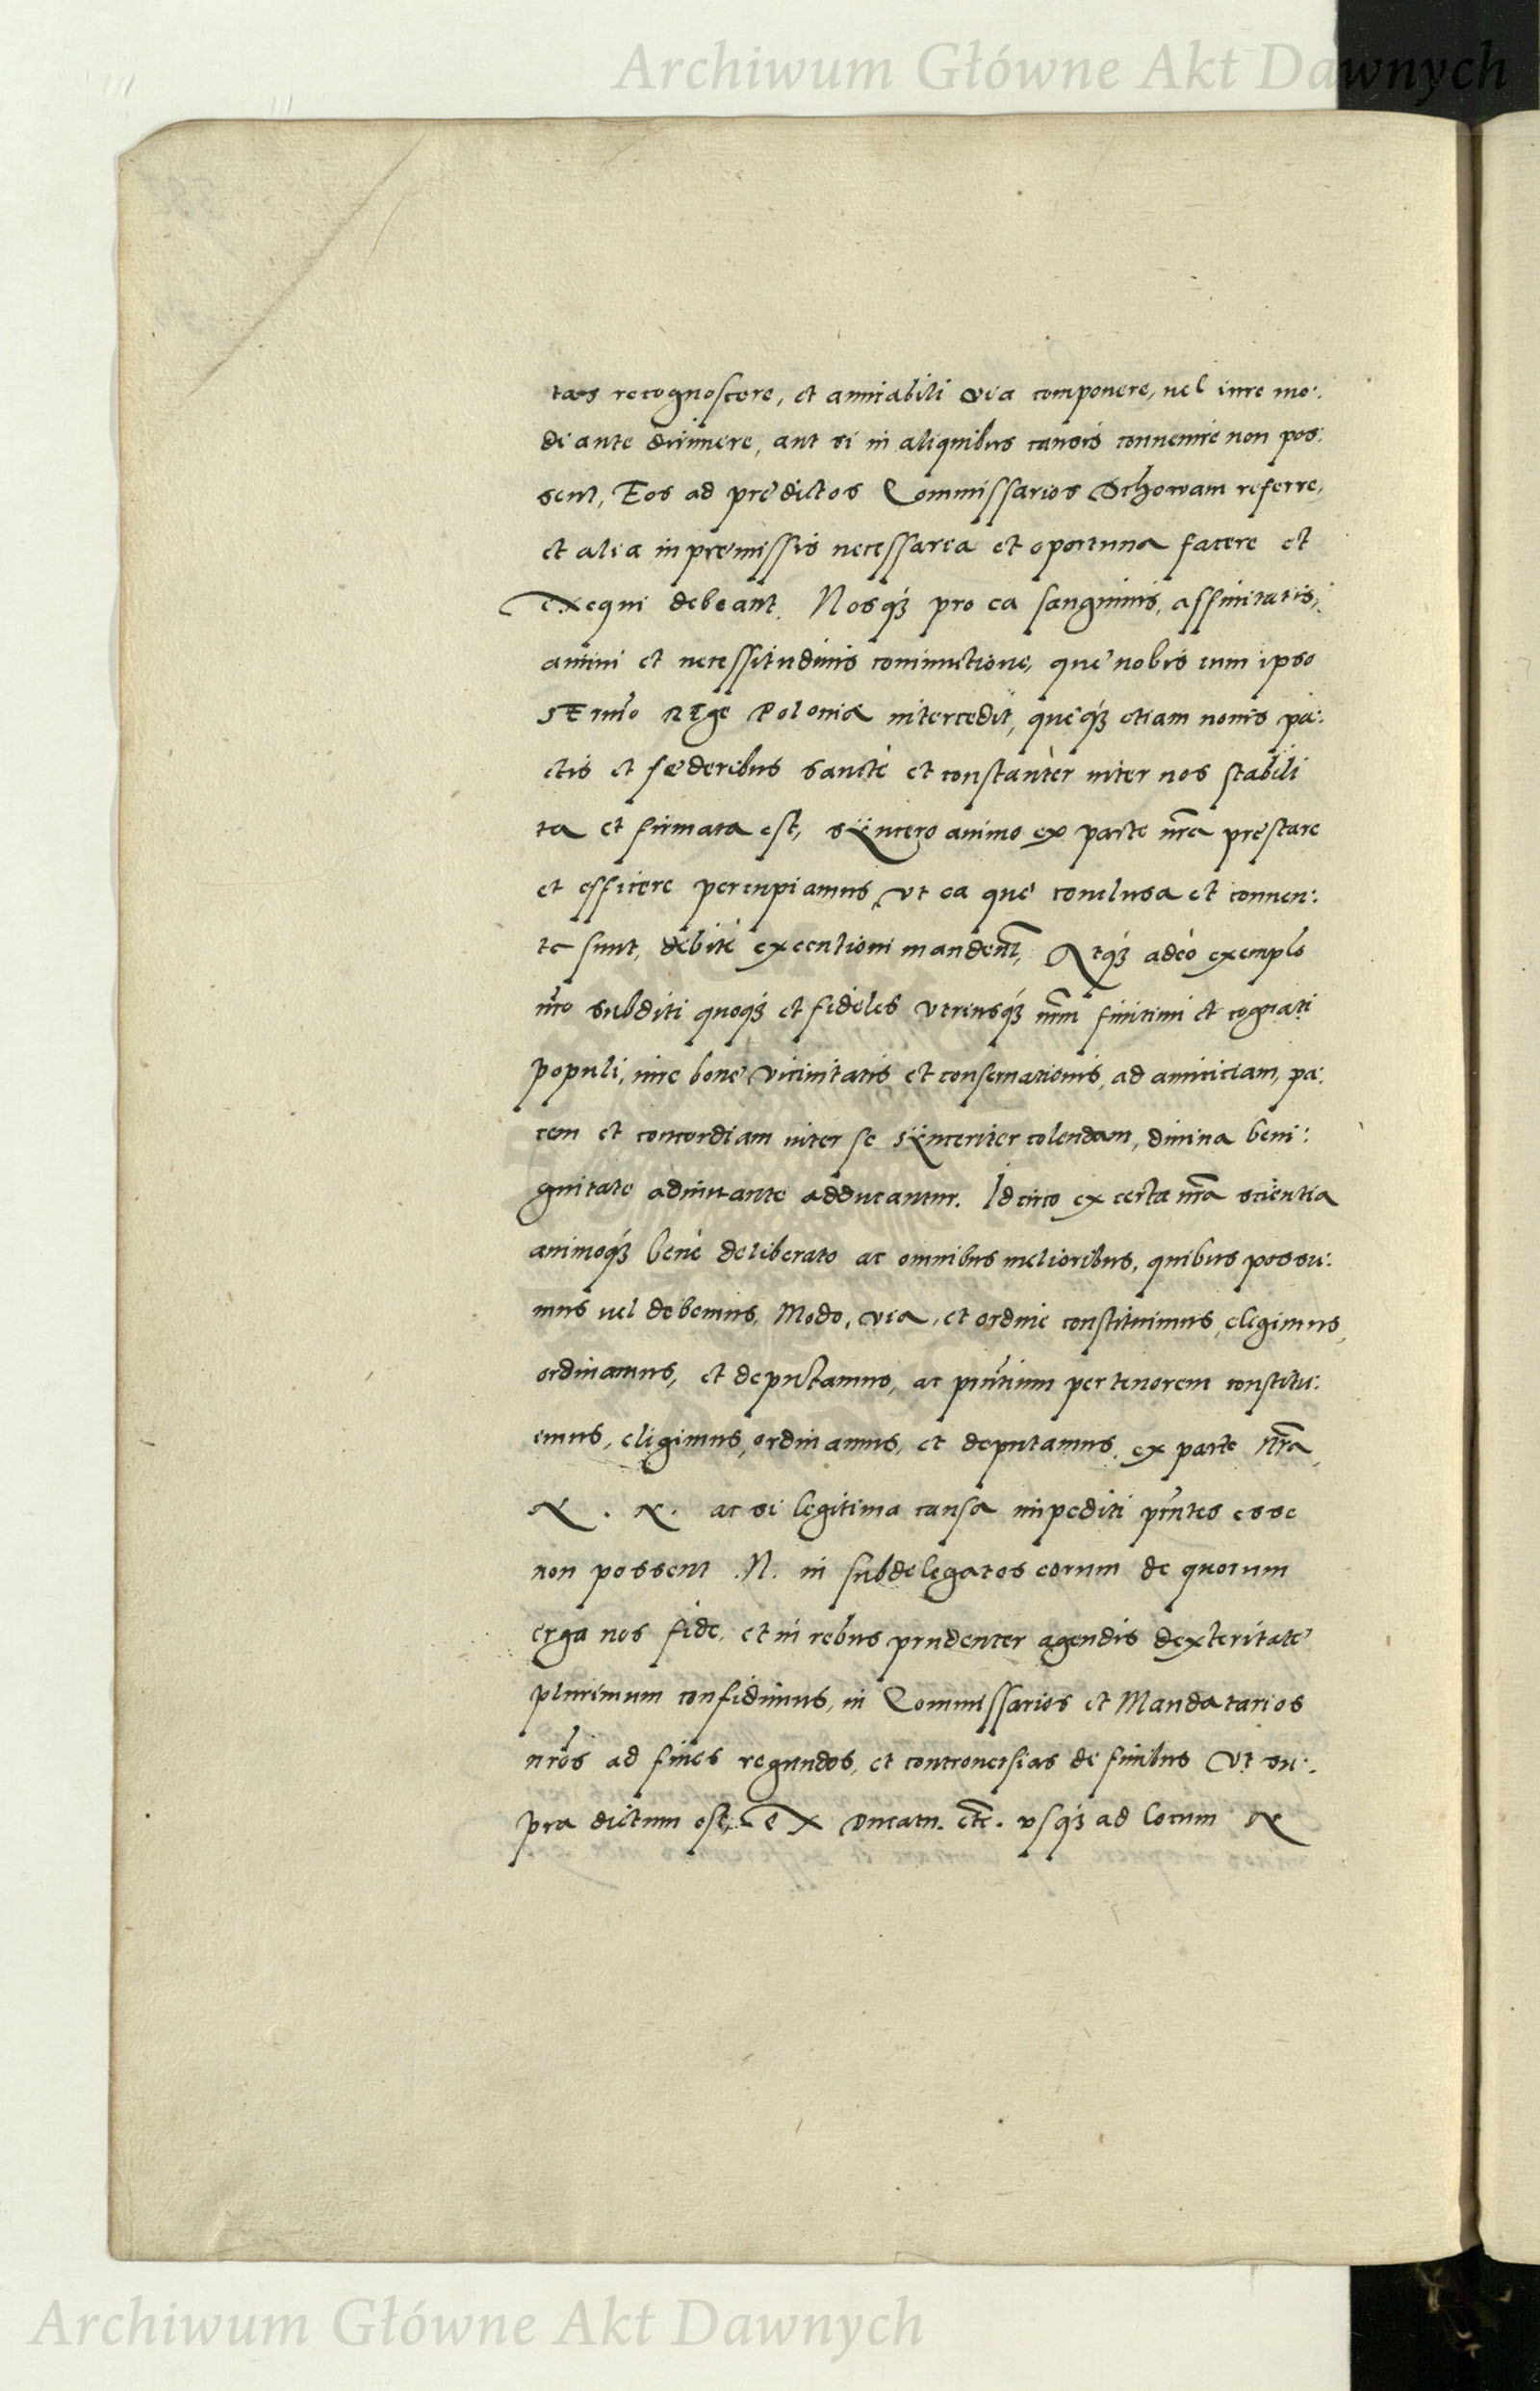 Archiwum Główne Akt Dawnych
tas recognoscere, et amicabili via componere, uel iure me:
diante dirimere, aut si in aliquibus causis conuenire non pos:
sent, Eos ad predictos Commissarios Schowam referre,
et alia in premissis necessaria et oportuna facere et
exequi debeant. Nosq3 pro ea sanguinis, affinitatis,
animi et necessitudinis coniunctione, que nobis cum ipso
SEr̃mo REge Poloniæ intercedit, queq3 etiam nouis pa:
ctis et fæderibus sanctè et constantèr inter nos stabili
ta et firmata est, sÿncero animo ex parte nr̃a prestare
et efficere percupiamus, vt ea que conclusa et conuen:
ta sunt, debitè executioni mandent̃, Atq3 adeò exemplo
nr̃o subditi quoq3 et fideles vtriusq3 nr̃m finitimi et cognati
populi, iure bone vicinitatis et conseruationis, ad amiciciam, pa:
cem et concordiam inter se sÿnceriter colendam, diuina beni:
gnitate adiuuante adducantur. Idcirco ex certa nr̃a scientia
animoq3 benè deliberato ac omnibus melioribus, quibus possu:
mus uel debemus, Modo, via, et ordine constituimus, elegimus,
ordinamus, et deputamus, ac pñtium per tenorem constitu:
imus, eligimus, ordinamus, et deputamus, ex parte Nr̃a,
N. N. ac si legitima causa impediti pñtes esse
non possent .N. in subdelegatos eorum de quorum
erga nos fide, et in rebus prudenter agendis dexteritate
plurimum confidimus, in Commissarios et Mandatarios
nr̃os ad fines regundos, et controuersias de finibus Vt su:
pra dictum est, EX Ducatu. etc̃. vsq3 ad locum N
Archiwum Główne Akt Dawnych